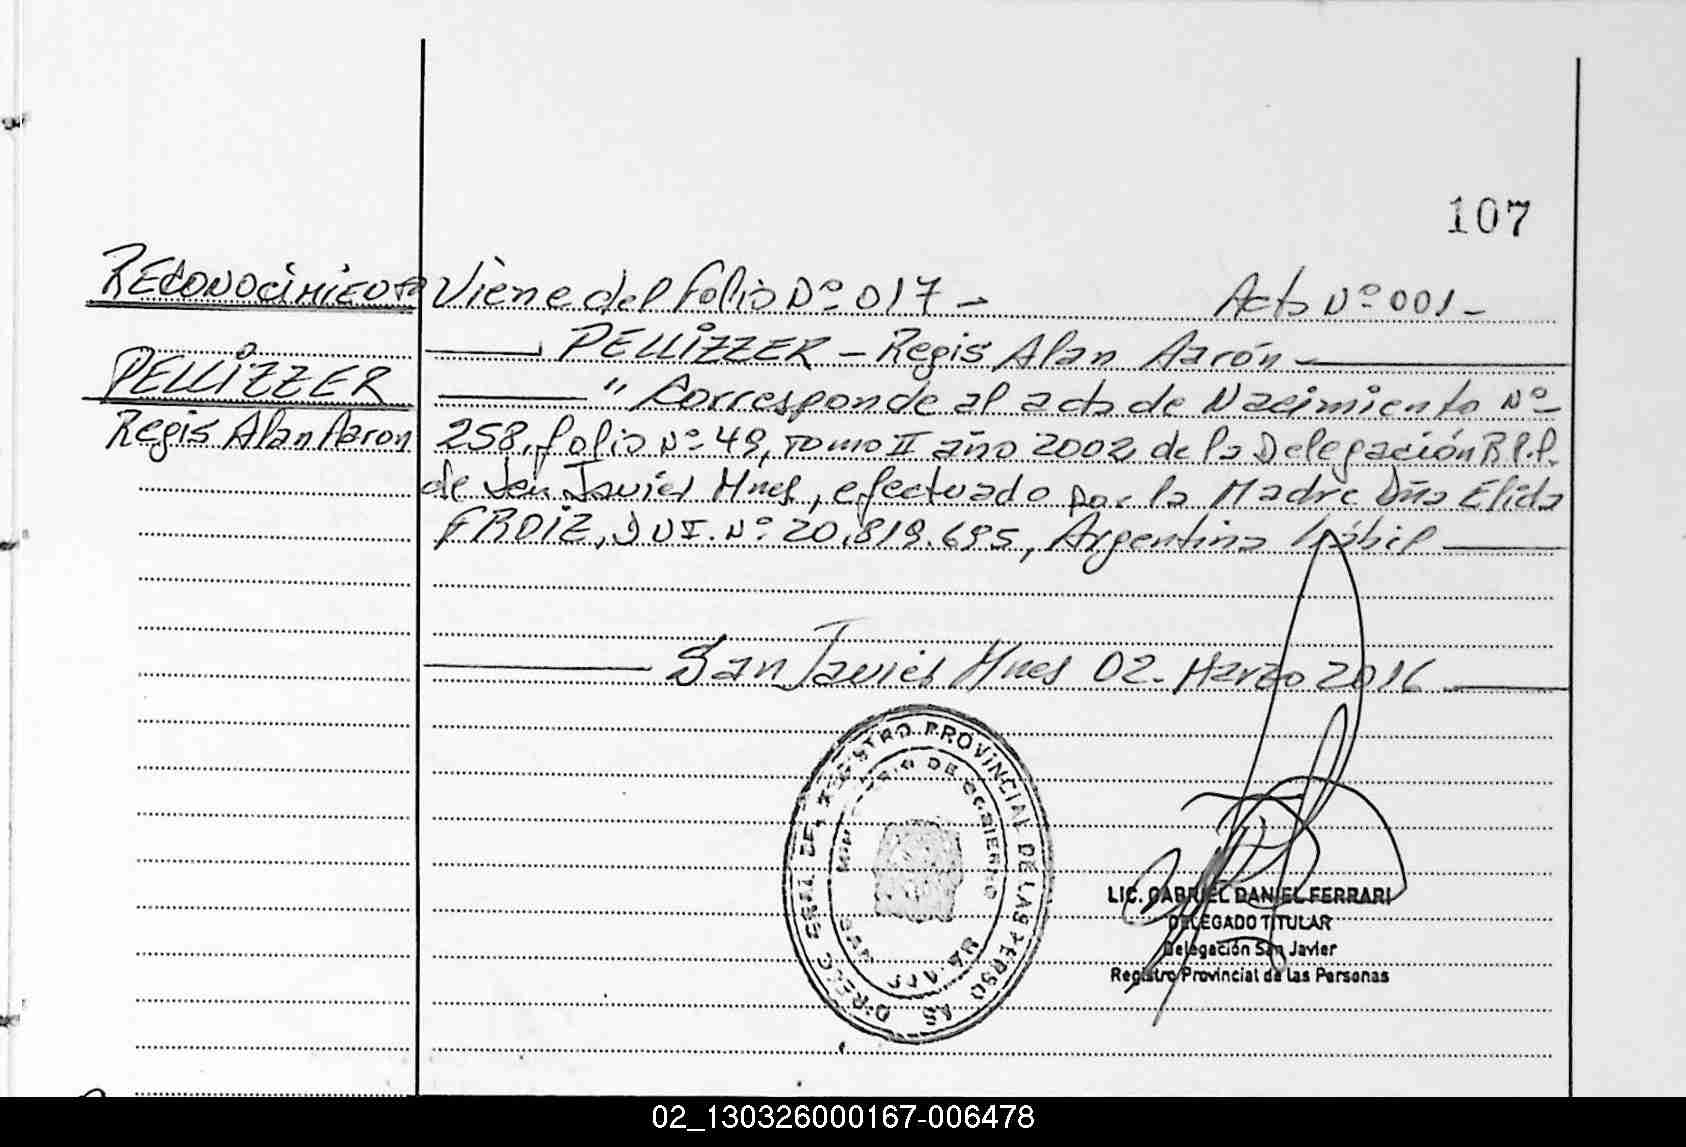 107
RECONOCIMIENTO Viene del folio Nº 017 - Acta Nº 001 -
PELLIZZER - Regis Alan Aarón -
PELLIZZER " Corresponde al acta de Nacimiento Nº
Regis Alan Aaron 258, folio Nº 49, tomo II año 2002, de la Delegación R.P.P.
de San Javier Mnes, efectuado por la Madre Dña Elida
FROIZ, DNI. Nº 20.819.695, Argentina Hábil
San Javier Mnes 02. Marzo 2016
DIREC GRAL DEL REGISTRO PROVINCIAL DE LAS PERSONAS
MINISTERIO DE GOBIERNO
LIC. GABRIEL DANIEL FERRARI
DELEGADO TITULAR
Delegación San Javier
Registro Provincial de las Personas
02_130326000167-006478